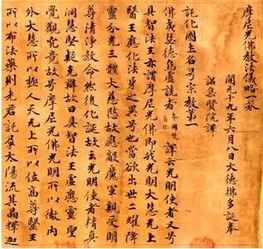 摩尼光佛教法儀略一卷
開元十九年六月八日大德拂多誕奉
詔集賢院譯
託化國主名号宗教第一
佛夷瑟德烏盧詵者本國梵音也譯云光明使者又号
具智法王亦謂摩尼光佛即我光明大慧无上
醫王應化法身之異号也當欲出世二耀降
靈分光三體大慈愍故應敵魔軍親受明
尊清淨教命然後化誕故云光明使者精真
洞慧堅疑克辯故曰具智法王虛應靈聖
覺觀究竟故号摩尼光佛光明所以徹內
外大慧所以極人天无上所以位高尊醫王
所以布法藥則老君託孕太陽流其晶釋迦